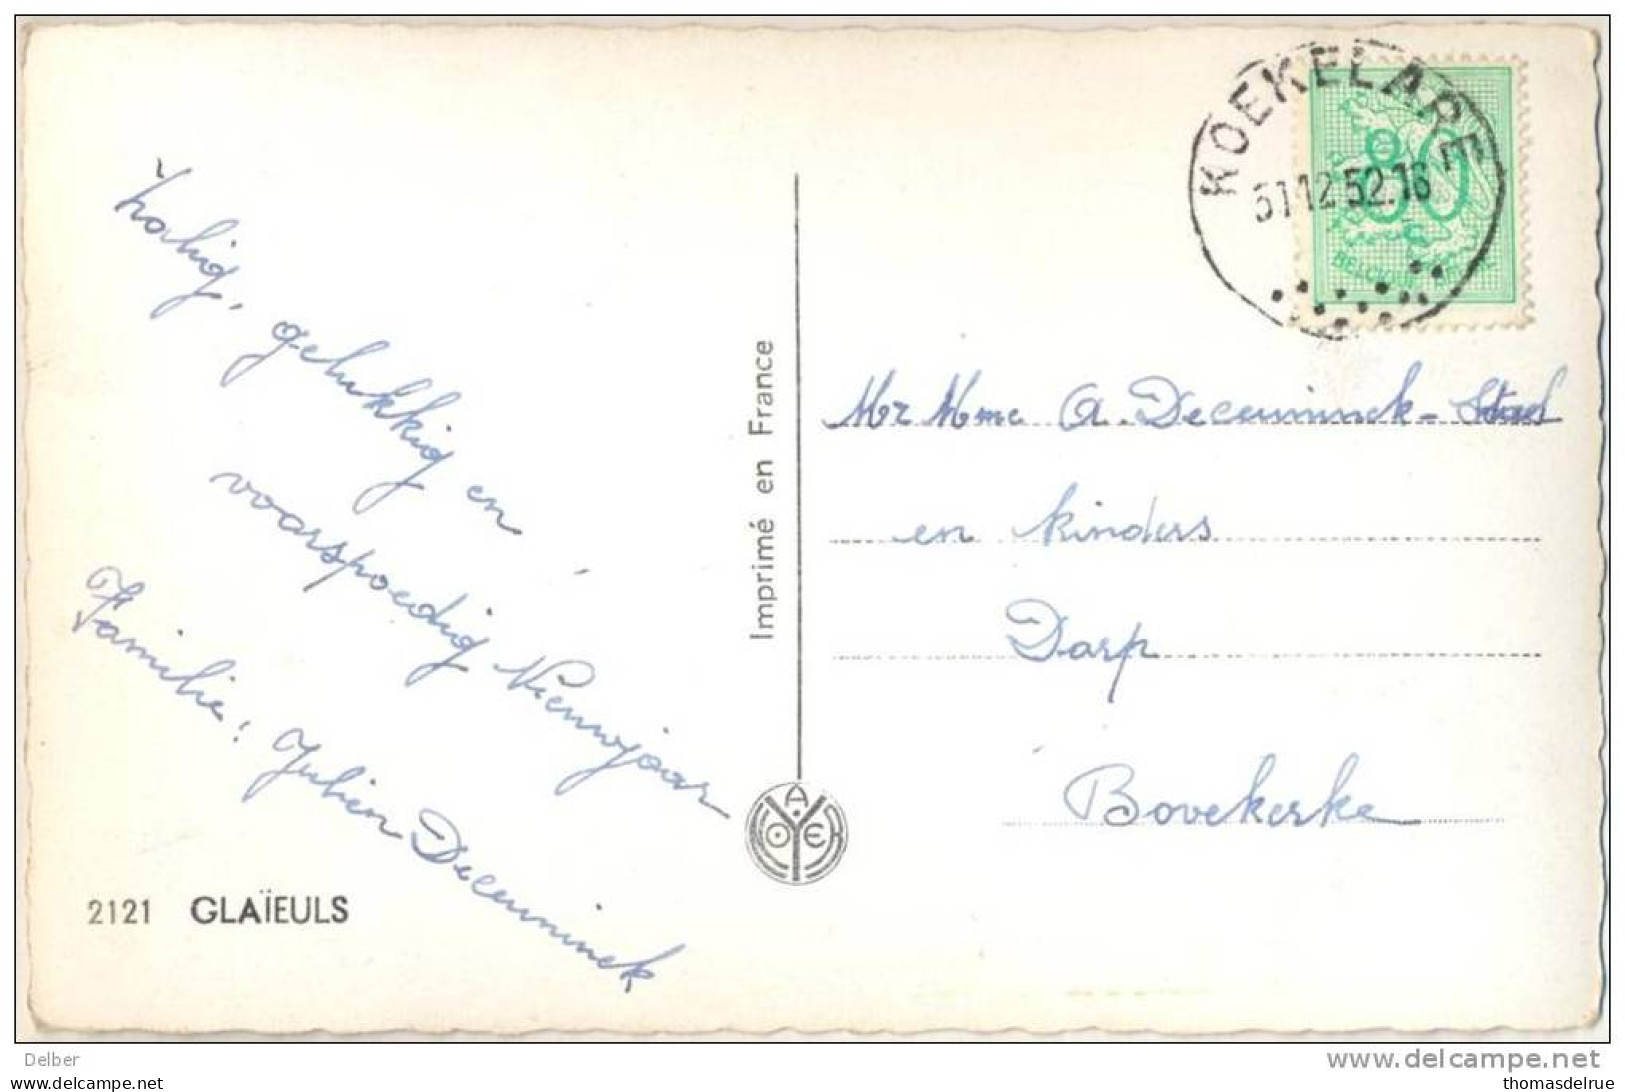 Zalig,
gelukkig en
voorspoedig Nieuwjaar
Familie: Julien Deceuninck
2121 GLAÏEULS
Imprimé en France
KOEKELARE
31 12 52.16
80
BELGIQUE BELGIE
Mr Mme A. Deceuninck -
en kinders
Dorp
Bovekerke
Delber
www.delcampe.net
thomasdelrue